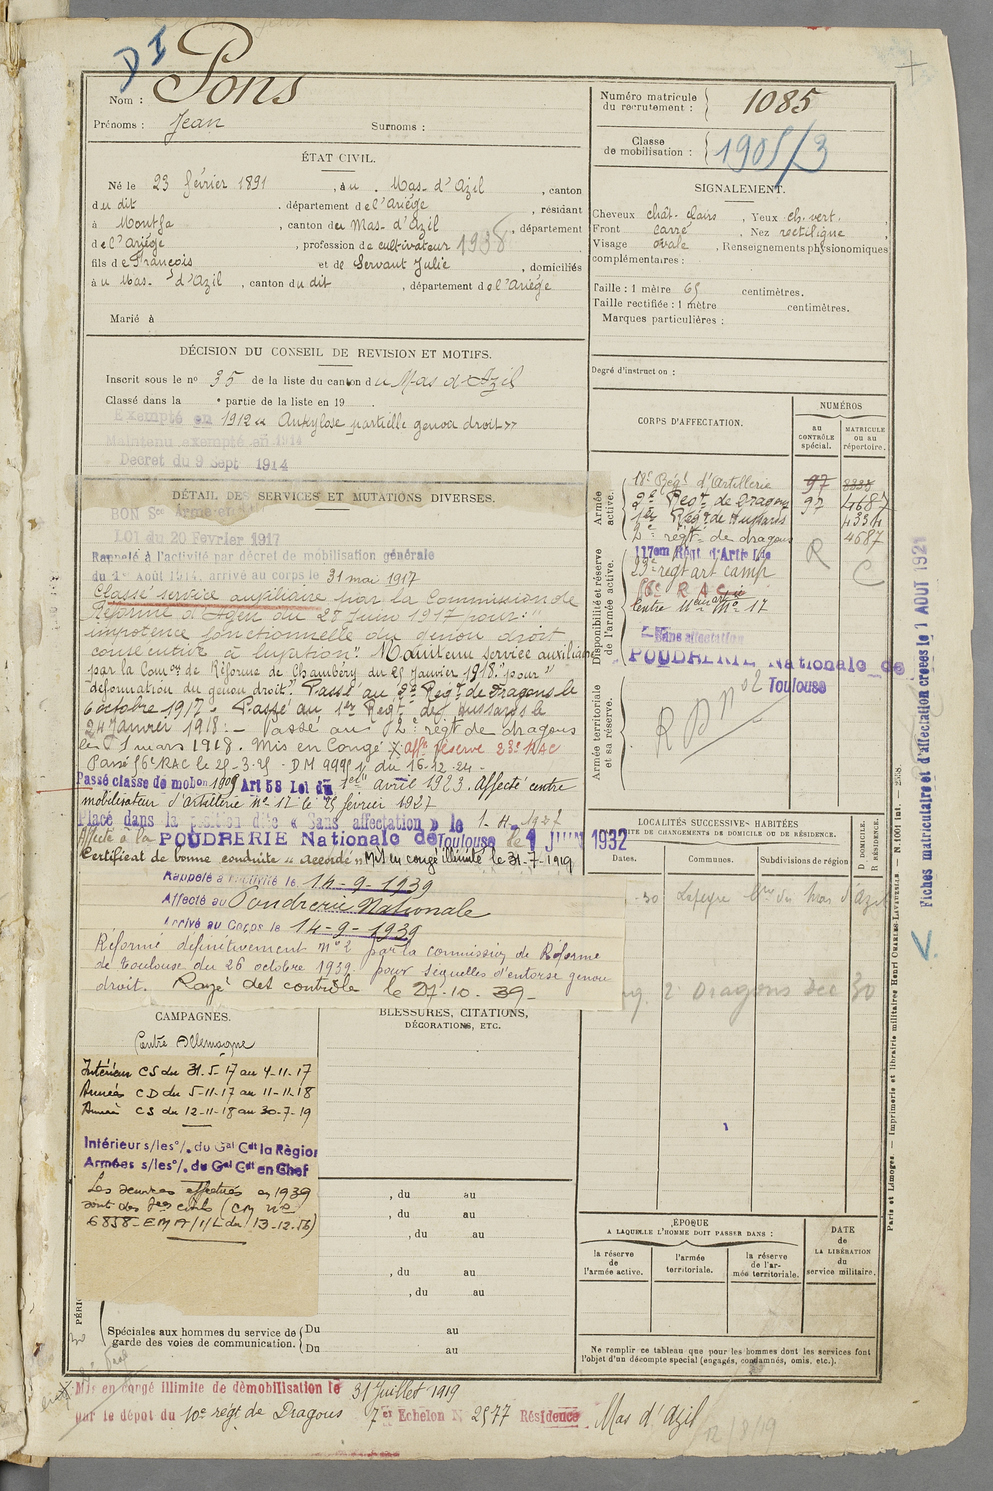 D I
Nom : Pons
Prénoms : Jean Surnoms :
Numéro matricule du recrutement : 1085
Classe de mobilisation : 1905/3
ÉTAT CIVIL.
Né le 23 février 1891, à u Mas-d'Azil, canton
du dit, département de l'Ariège, résidant
à Montfa, canton du Mas-d'Azil, département
de l'Ariège, profession de cultivateur 1938
fils de François et de Servant Julie, domiciliés
à u Mas-d'Azil, canton du dit, département de l'Ariège
Marié à
SIGNALEMENT.
Cheveux chât. clairs, Yeux ch. vert.
Front carré, Nez rectiligne
Visage ovale, Renseignements physionomiques
complémentaires :
Taille : 1 mètre 65 centimètres.
Taille rectifiée : 1 mètre centimètres.
Marques particulières :
Degré d'instruction :
DÉCISION DU CONSEIL DE REVISION ET MOTIFS.
Inscrit sous le n° 35 de la liste du canton du Mas d'Azil
Classé dans la e partie de la liste en 19
Exempté en 1912 « Ankylose partielle genou droit »
Maintenu exempté en 1914
Décret du 9 Sept 1914
DÉTAIL DES SERVICES ET MUTATIONS DIVERSES.
BON Sce Armé
LOI du 20 Février 1917
Rappelé à l'activité par décret de mobilisation générale
du 1er Août 1914, arrivé au corps le 31 mai 1917
Classé service auxiliaire par la Commission de
Réforme d'Agen du 28 Juin 1917 pour : "
impotence fonctionnelle du genou droit
consécutive à luxation". Maintenu service auxiliaire
par la Comon de Réforme de Chambéry du 25 Janvier 1918 "pour"
déformation du genou droit. Passé au 2e Regt de Dragons le
6 octobre 1917. Passé au 1er Regt de Hussards le
24 Janvier 1918. - Passé au 2e regt de dragons
le 1 mars 1918. Mis en Congé X aff. réserve 23e RAC
Passé 56e RAC le 25-3-25 - DM 9991 du 16.12.24 -
Passé classe de mobon 1909 Art 58 Loi du 1er avril 1923. Affecté centre
mobilisateur d'artillerie n° 17 le 25 février 1927
Placé dans la position dite « Sans affectation » le 1-4-1927
Affecté à la POUDRERIE Nationale de Toulouse le 1 JUIN 1932
Certificat de bonne conduite « accordé » Mis en congé illimité le 31-7-1919
Rappelé à l'activité le 14-9-1939
Affecté au Poudrerie Nationale
Arrivé au Corps le 14-9-1939
Réformé définitivement n° 2 par la commission de Réforme
de Toulouse du 26 octobre 1939 pour séquelles d'entorse genou
droit. Rayé des contrôles le 27.10.39 -
CORPS D'AFFECTATION.
NUMÉROS
AU CONTRÔLE spécial.
MATRICULE OU AU répertoire.
Armée active.
18e Régt d'Artillerie 97
2e Regt de Dragons 97 4687
1er Regt de Hussards 4334
2e regt de dragons 4687
Disponibilité et réserve de l'armée active.
117em Régt d'Artillerie
23e regt art camp R C
56e R A C
Centre Mob Art n° 17
Sans affectation
POUDRERIE Nationale de
Toulouse
Armée territoriale et sa réserve.
R D n° 2
LOCALITÉS SUCCESSIVES HABITÉES
SUITE DE CHANGEMENTS DE DOMICILE OU DE RÉSIDENCE.
Dates. Communes. Subdivisions de région. D. DOMICILE. R. RÉSIDENCE.
30 Lafeyre Cne du Mas d'Azil
2 Dragons 30
CAMPAGNES.
Contre Allemagne
Intérieur CS du 31.5.17 au 4-11-17
Armées CD du 5-11-17 au 11-11-18
Armées CS du 12-11-18 au 30-7-19
Intérieur s/les o/. du Gal Cdt la Région
Armées s/les o/. du Gal Cdt en Chef
Les services effectués en 1939
sont des services civils (CM n°
6858-EMA/1/L du 13-12-56)
BLESSURES, CITATIONS,
DÉCORATIONS, ETC.
, du au
, du au
, du au
, du au
, du au
Spéciales aux hommes du service de garde des voies de communication.
Du au
Du au
ÉPOQUE
A LAQUELLE L'HOMME DOIT PASSER DANS :
la réserve de l'armée active.
l'armée territoriale.
la réserve de l'armée territoriale.
DATE de LA LIBÉRATION du service militaire.
Ne remplir ce tableau que pour les hommes dont les services font
l'objet d'un décompte spécial (engagés, condamnés, omis, etc.).
Mis en congé illimité de démobilisation le 31 Juillet 1919
par le dépôt du 10e régt de Dragons 7er Echelon N 2577 Résidence Mas d'Azil
12/8/19
Fiches matriculaire et d'affectation créées le 1 AOUT 1921
Paris et Limoges. — Imprimerie et librairie militaires Henri CHARLES-LAVAUZELLE. — N. 1001 int. — 2538.